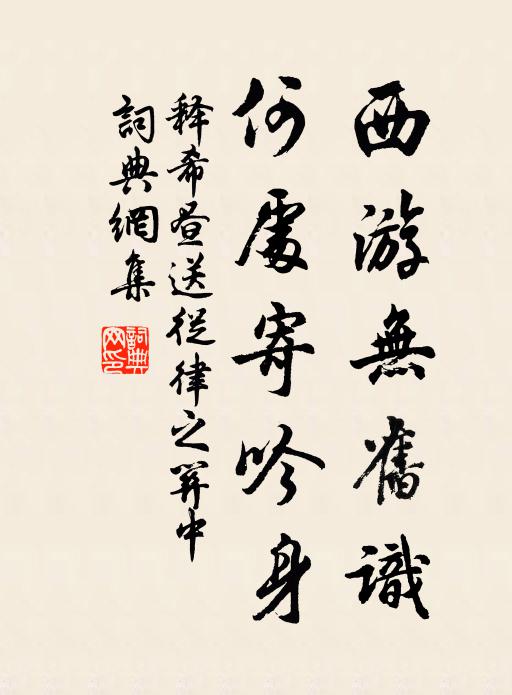 西游無舊識
何處寄吟身
释希昼送從律之関中
詞典網集
詞典網印